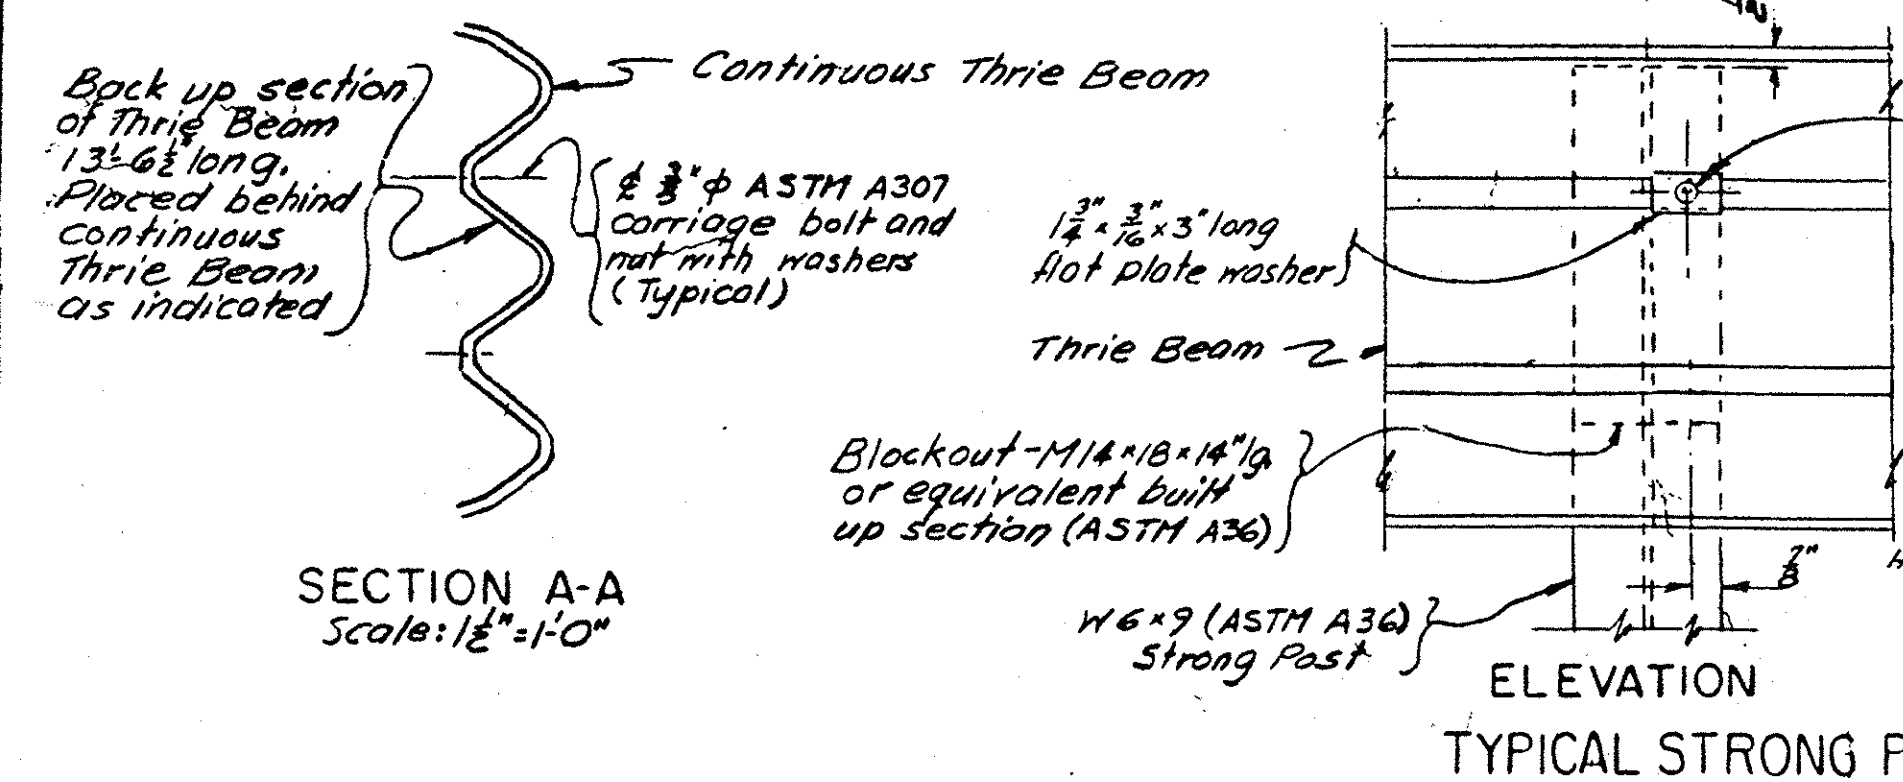 Back up section
of Thrie Beam
13'-6½" long.
Placed behind
continuous
Thrie Beam
as indicated
Continuous Thrie Beam
ASTM A307
carriage bolt and
nut with washers
(Typical)
SECTION A-A
Scale: 1½"=1'-0"
1¾" × 3/16" × 3" long
flat plate washer
Thrie Beam
Blockout-M14×18×14" lg.
or equivalent built
up section (ASTM A36)
W6×9 (ASTM A36)
Strong Post
7/8"
ELEVATION
TYPICAL STRONG P